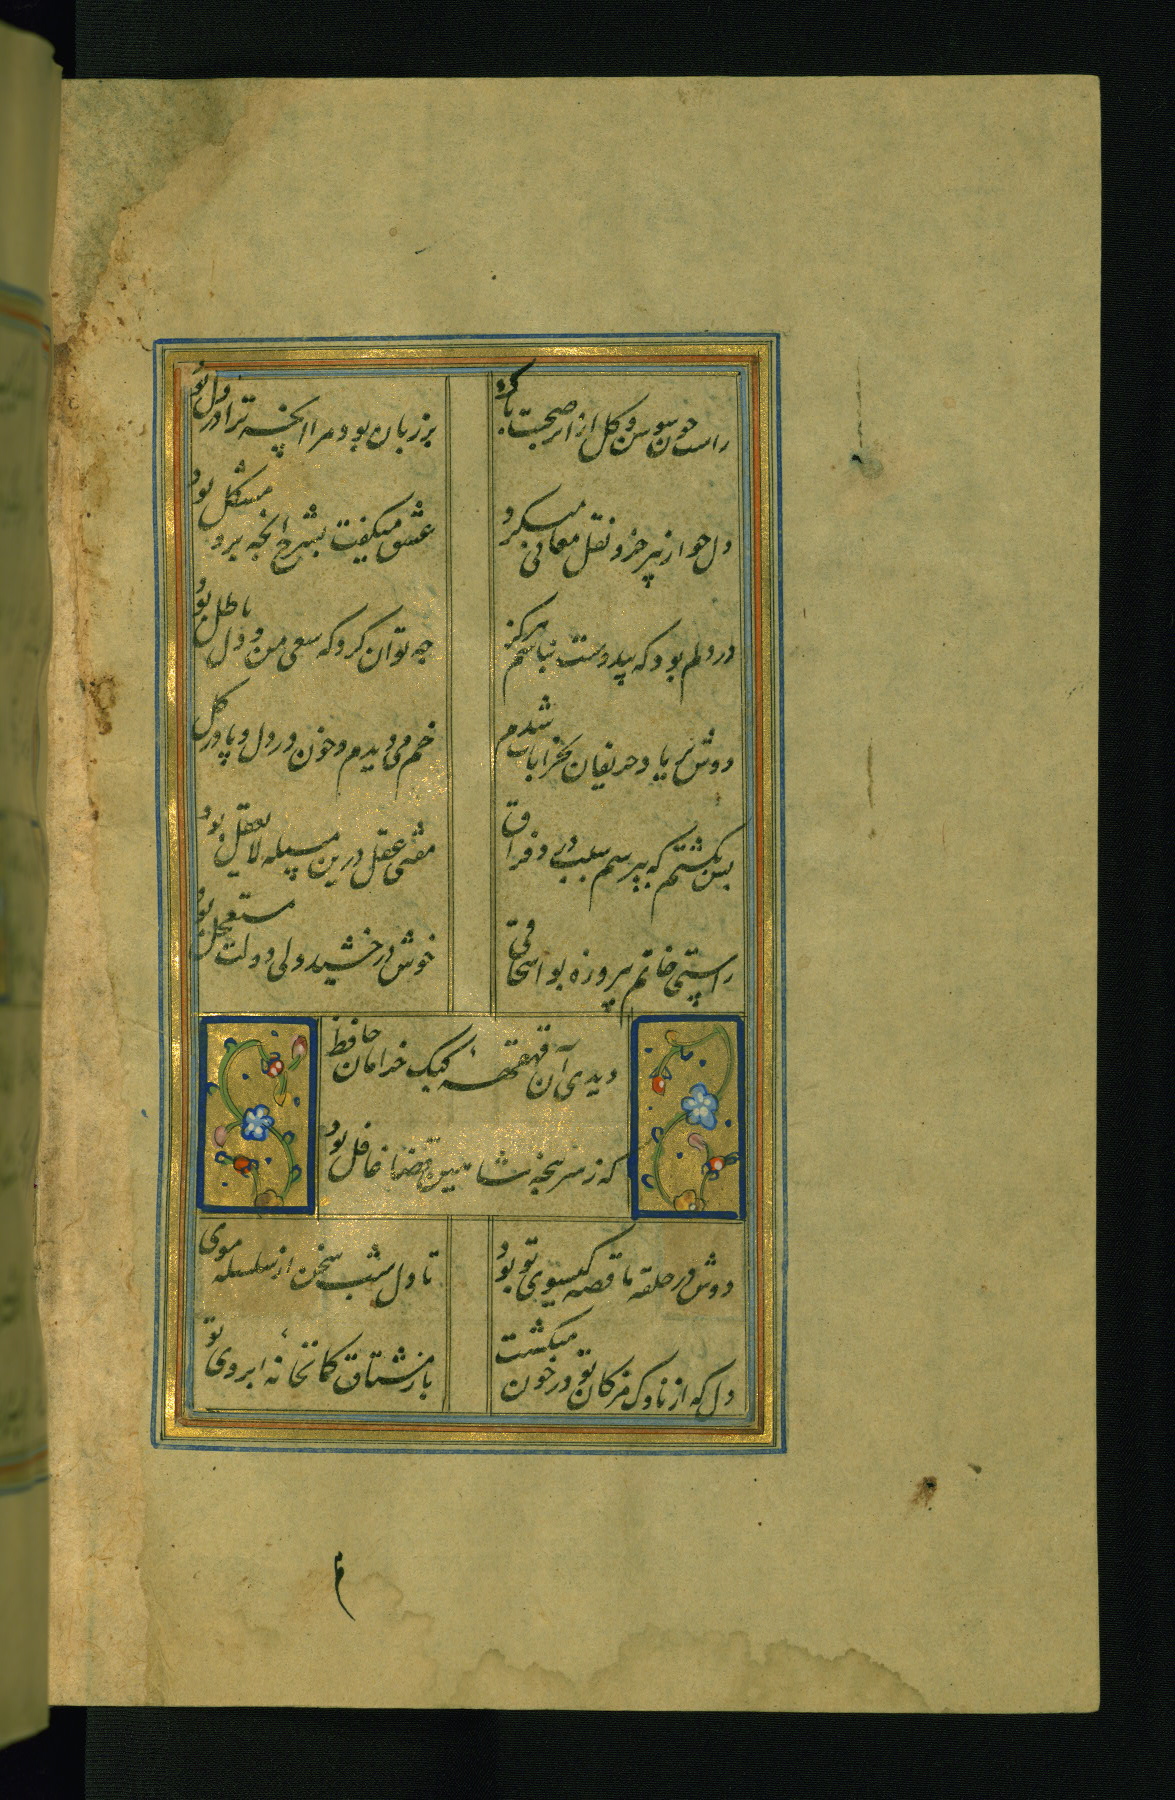 راست چون سوسن و گل از اثر صحبت پاک
بر زبان بود مرا آنچه ترا در دل بود
دل چو از پیر خرد نقل معانی میکرد
عشق میگفت بشرح آنچه برو مشکل بود
در دلم بود که بیدوست نباشم هرگز
چه توان کرد که سعی من و دل باطل بود
دوش بر یاد حریفان بخرابات شدم
خم می دیدم و خون در دل و پا در گل
بس بگشتم که بپرسم سبب درد فراق
مفتی عقل درین مسیله لا یعقل بود
راستی خاتم پیروزه بو اسحاقی
خوش درخشید ولی دولت مستعجل بود
دیدی آن قهقهه کبک خرامان حافظ
که ز سر پنجه شاهین قضا غافل بود
دوش در حلقه ما قصه گیسوی تو بود
تا دل شب سخن از سلسله موی
دل که از ناوک مژگان تو در خون میگشت
باز مشتاق کمانخانه ابروی تو